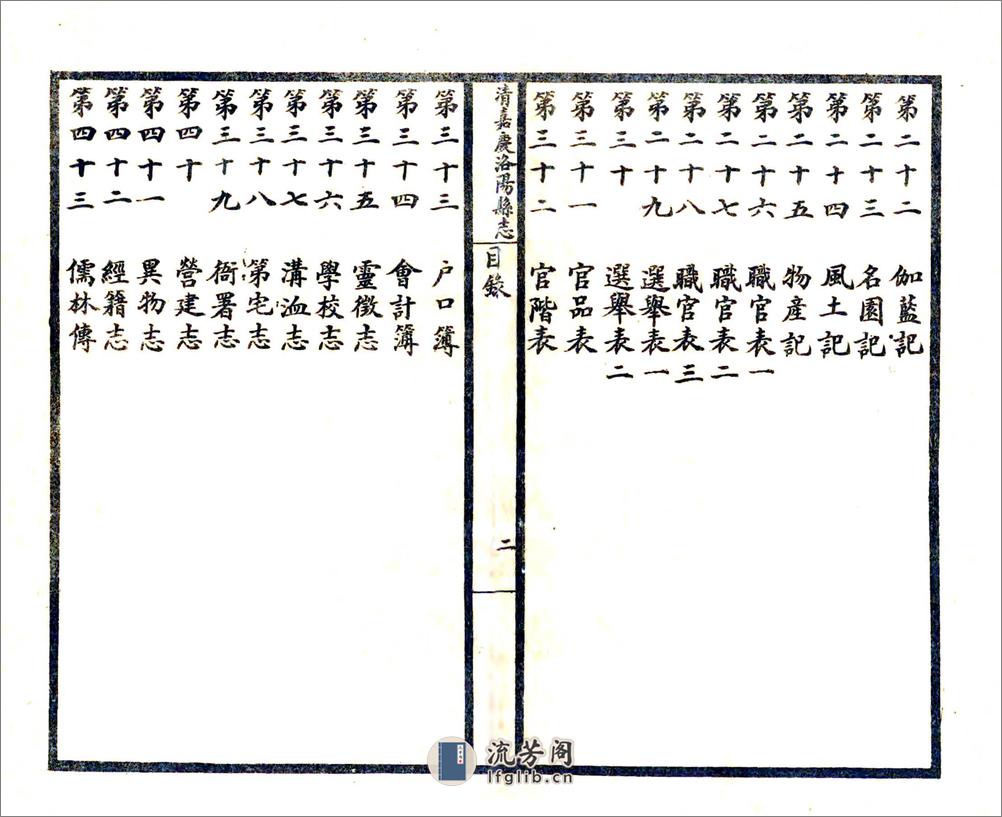 第二十二 伽藍記
第二十三 名園記
第二十四 風土記
第二十五 物產記
第二十六 職官表一
第二十七 職官表二
第二十八 職官表三
第二十九 選舉表一
第三十 選舉表二
第三十一 官品表
第三十二 官階表
清嘉慶洛陽縣志 目錄 二
第三十三 户口簿
第三十四 會計簿
第三十五 靈徵志
第三十六 學校志
第三十七 溝洫志
第三十八 第宅志
第三十九 衙署志
第四十 營建志
第四十一 異物志
第四十二 經籍志
第四十三 儒林傳
流芳阁
lfglib.cn